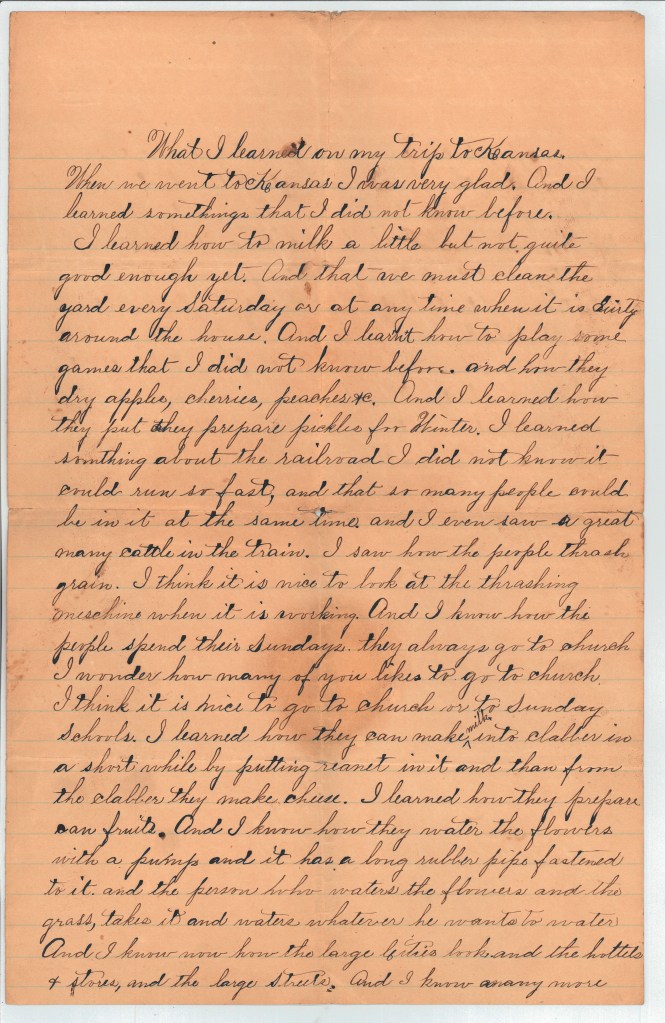 What I learned on my trip to Kansas.
When we went to Kansas I was very glad. And I
learned somethings that I did not know before.
I learned how to milk a little but not quite
good enough yet. And that we must clean the
yard every Saturday or at any time when it is dirty
around the house. And I learnt how to play some
games that I did not know before. and how they
dry apples, cherries, peaches &c. And I learned how
they put they prepare pickles for Winter. I learned
somthing about the railroad I did not know it
could run so fast, and that so many people could
be in it at the same time, and I even saw a great
many cattle in the train. I saw how the people thrash
grain. I think it is nice to look at the thrashing
meschine when it is working. And I know how the
people spend their Sundays. they always go to church
I wonder how many of you likes to go to church.
I think it is nice to go to church or to Sunday
Schools. I learned how they can make milk into clabber in
a short while by putting reanet in it and than from
the clabber they make cheese. I learned how they prepare
can fruits. And I know how they water the flowers
with a pump and it has a long rubber pipe fastened
to it. and the person who waters the flowers and the
grass, takes it and waters whatever he wants to water
And I know now how the large Cities look and the hottels
& stores, and the large streets. And I know many more